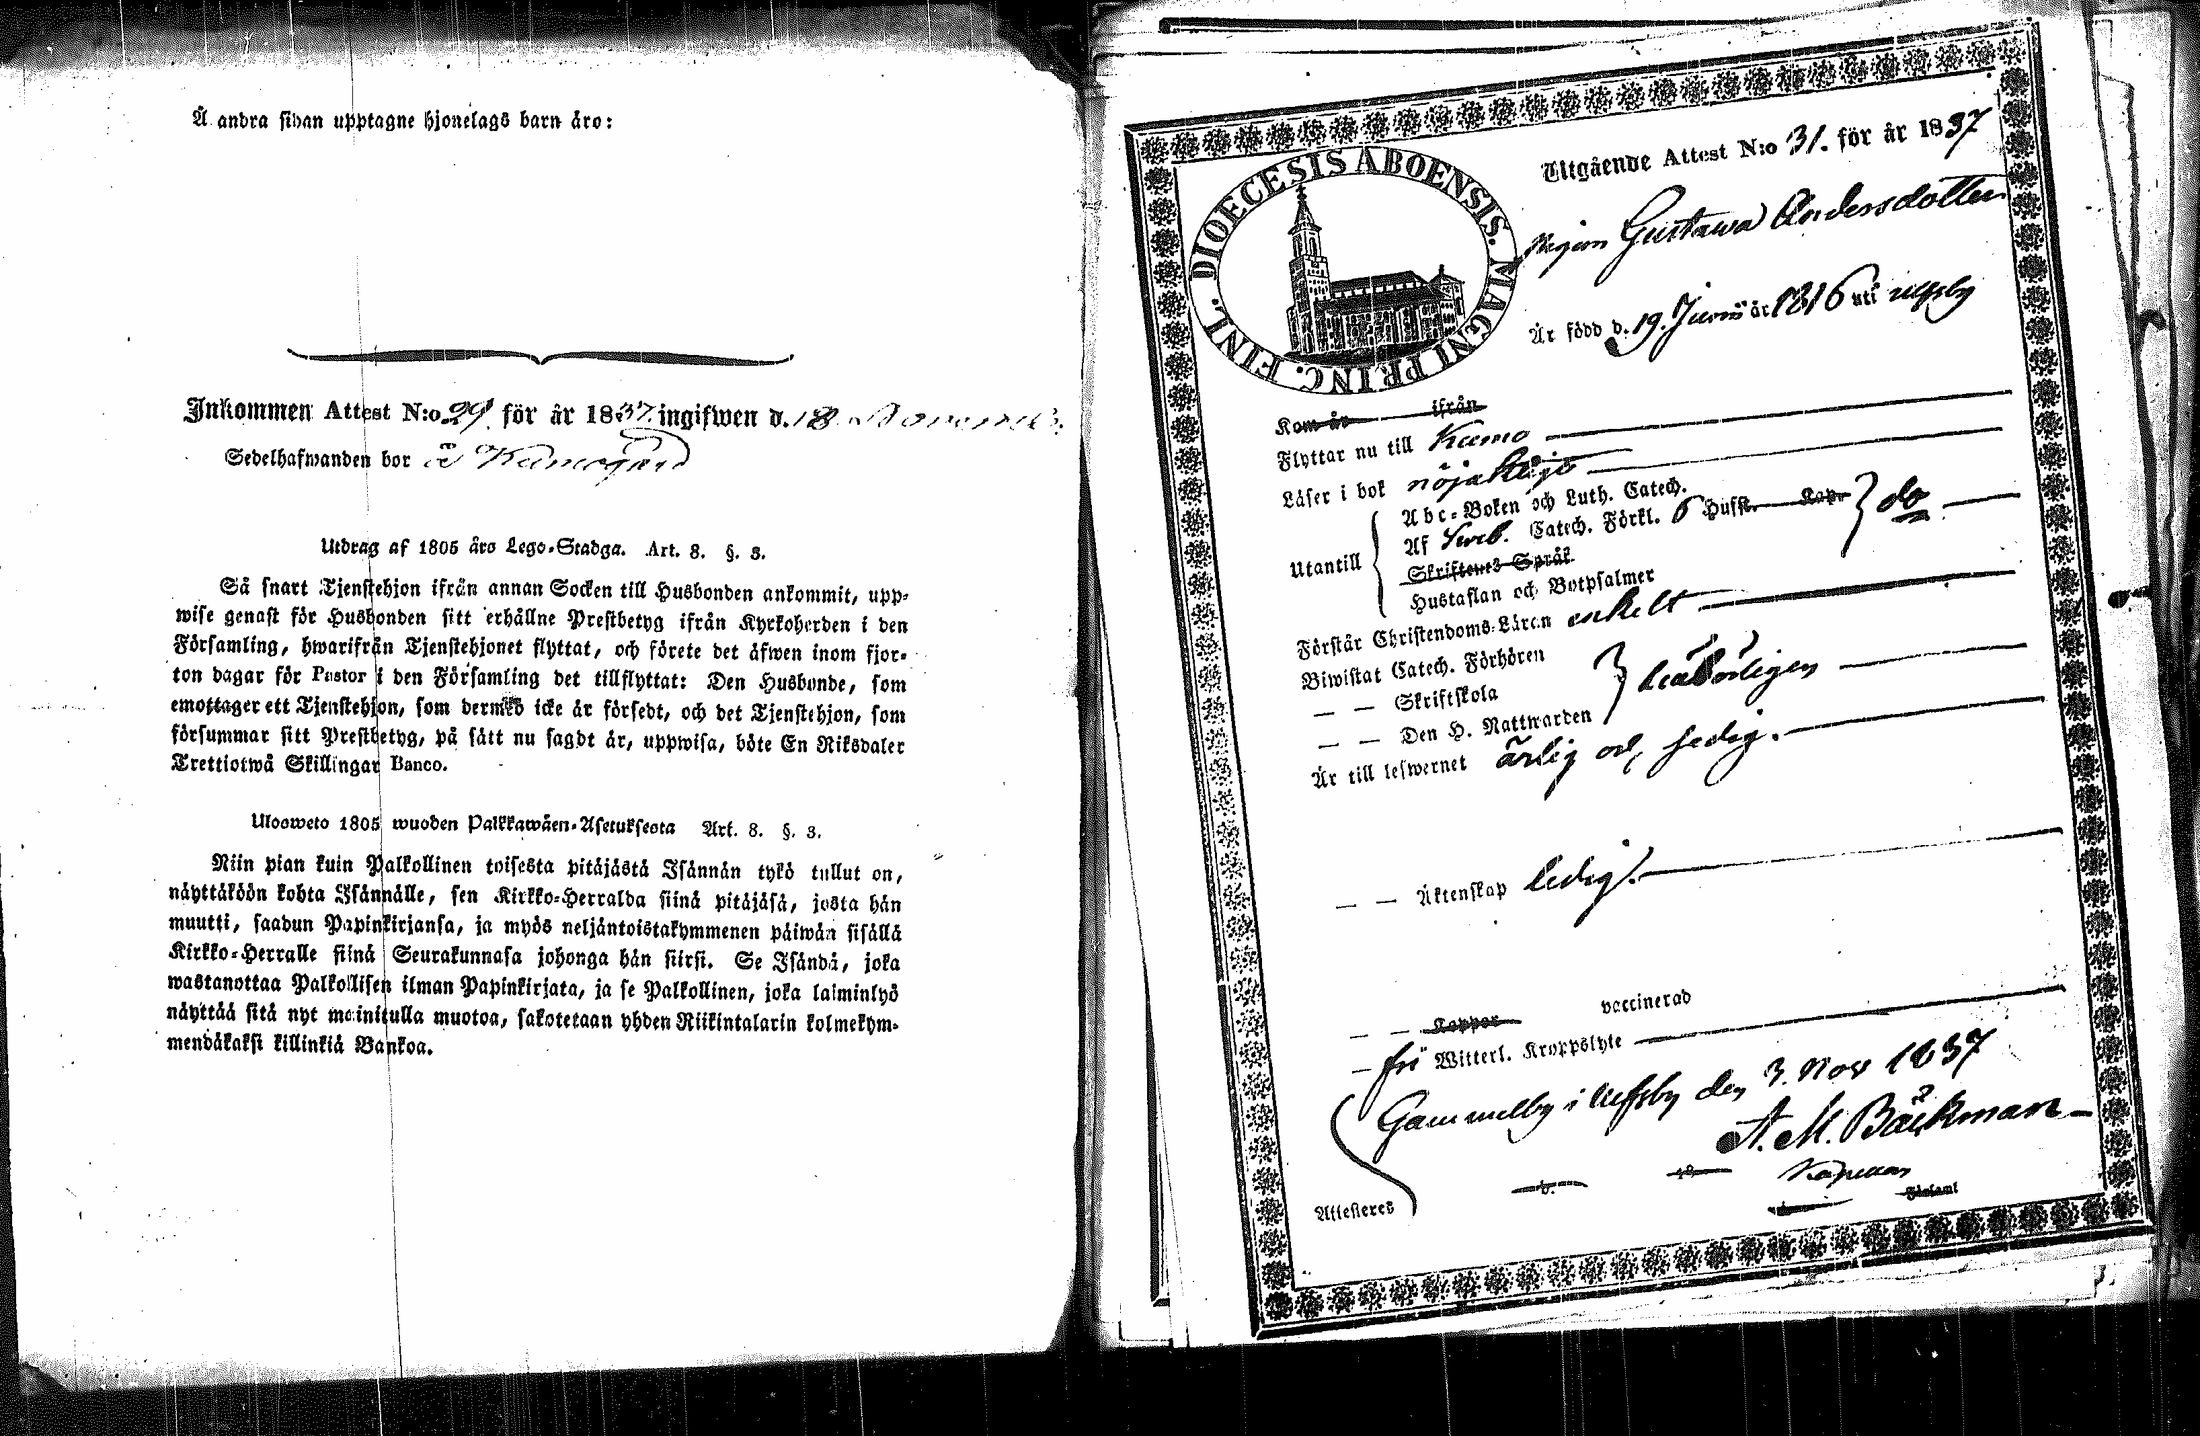 Å andra sidan upptagne hjonelags barn äro:
Inkommen Attest N:o 29 för år 1837 ingifwen d. 18 Novemb.
Sedelhafwanden bor å Kumogård
Utdrag af 1805 års Lego-Stadga. Art. 8. §. 3.
Så snart Tjenstehjon ifrån annan Socken till Husbonden ankommit, upp-
wise genast för Husbonden sitt erhållne Prestbetyg ifrån Kyrkoherden i den
Församling, hwarifrån Tjenstehjonet flyttat, och förete det äfwen inom fjor-
ton dagar för Pastor i den Församling det tillflyttat: Den Husbonde, som
emottager ett Tjenstehjon, som dermed icke är försedt, och det Tjenstehjon, som
försummar sitt Prestbetyg, på sätt nu sagdt är, uppwisa, böte En Riksdaler
Trettiotwå Skillingar Banco.
Ulosweto 1805 wuoden Palkkawäen-Asetuksesta Art. 8. §. 3.
Niin pian kuin Palkollinen toisesta pitäjästä Isännän tykö tullut on,
näyttäköön kohta Isännälle, sen Kirkko-Herralda siinä pitäjäsä, josta hän
muutti, saadun Papinkirjansa, ja myös neljäntoistakymmenen päiwän sisällä
Kirkko-Herralle siinä Seurakunnasa johonga hän siirsi. Se Isändä, joka
wastanottaa Palkollisen ilman Papinkirjata, ja se Palkollinen, joka laiminlyö
näyttää sitä nyt mainitulla muotoa, sakotetaan yhden Riikintalarin kolmekym-
mendäkaksi killinkiä Bankoa.
DIOECESIS ABOENSIS. MAGNI PRINC. FINL.
Utgående Attest N:o 31. för år 1837
Pigan Gustawa Andersdotter
Är född d. 19. Junii år 1816 uti Ulfsby
Kom år ifrån
Flyttar nu till Kumo
Läser i bok nöjaktigt
Abc-Boken och Luth. Catech.
Af Sweb. Catech. Förkl. 6 Hufst. Kap.
do
Utantill
Skriftenes Språk
Hustaflan och Botpsalmer
Förstår Christendoms-Läran enkelt
Biwistat Catech. Förhören
— — Skriftskola
behörigen
— — Den H. Nattwarden
Är till lefwernet ärlig och sedig.
— — Äktenskap ledig.
— — Koppor vaccinerad
— fri Witterl. Kroppslyte
Gammelby i Ulfsby den 3. Nov 1837
A. M. Bäckman
Kapellan
Attesteres d. 18
Församl